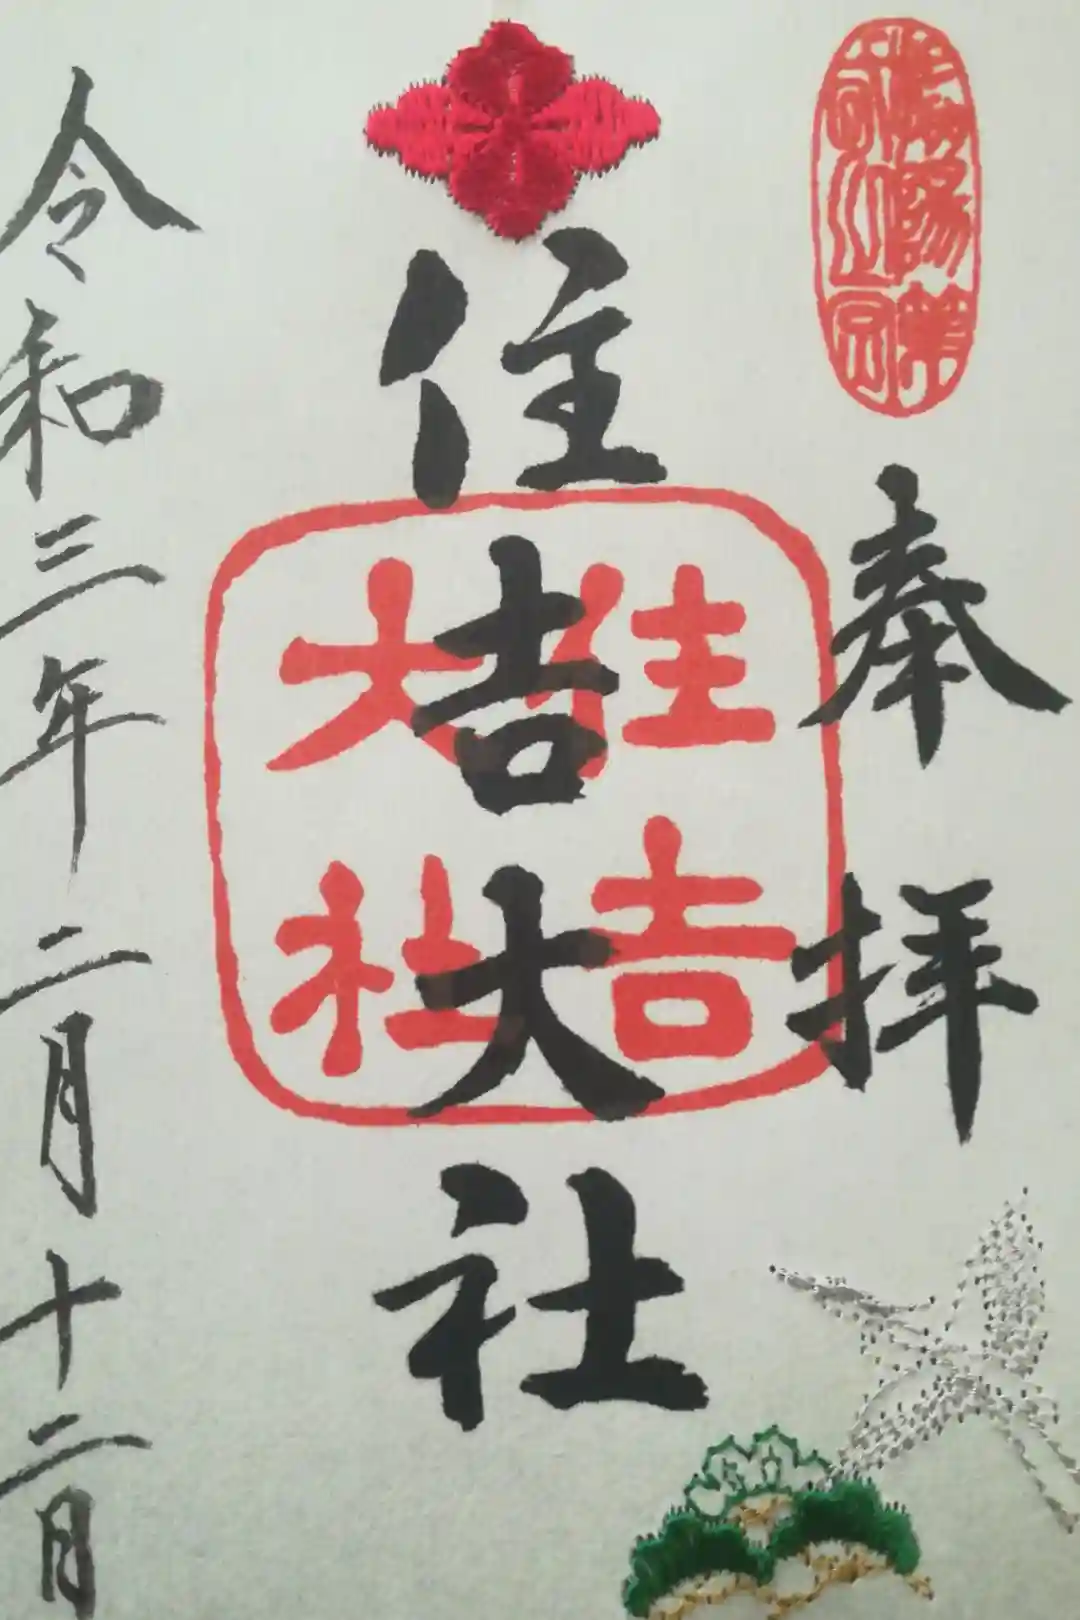 奉拝
住吉大社
住吉
大社
令和三年二月十二日